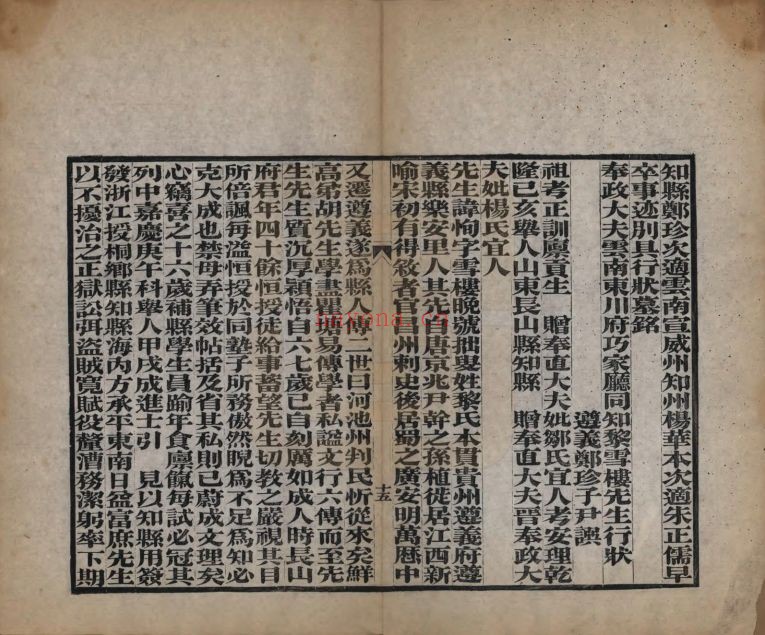 知縣鄭珍次適雲南宣威州知州楊華本次適朱正儒早
卒事迹別具行狀墓銘
奉政大夫雲南東川府巧家廳同知黎雪樓先生行狀
遵義鄭珍子尹譔
祖考正訓廪貢生　贈奉直大夫妣鄒氏宜人考安理乾
隆己亥舉人山東長山縣知縣　贈奉直大夫晉奉政大
夫妣楊氏宜人
先生諱恂字雪樓晚號拙叟姓黎氏本貫貴州遵義府遵
義縣樂安里人其先自唐京兆尹幹之孫植徙居江西新
喻宋初有得敘者官邕州刺史後居蜀之廣安明萬厯中
十五
又遷遵義遂爲縣人傳二世曰河池州判民忻從來矣鮮
高弟胡先生學盡瞿塘易傳學者私謚文行六傳而至先
生先生質沉厚穎悟自六七歲已自刻厲如成人時長山
府君年四十餘恒授徒給事蓄望先生切教之嚴視其目
所倍諷每溢恒授於同塾子所務傲然睨爲不足爲知必
克大成也禁毋弄筆效帖括及省其私則已蔚成文理矣
心竊喜之十六歲補縣學生員踰年食廪餼每試必冠其
列中嘉慶庚午科舉人甲戌成進士引　見以知縣用簽
發浙江授桐鄉縣知縣海内方承平東南日益富庶先生
以不擾治之正獄訟弭盗賊寬賦役釐漕務潔躬率下期